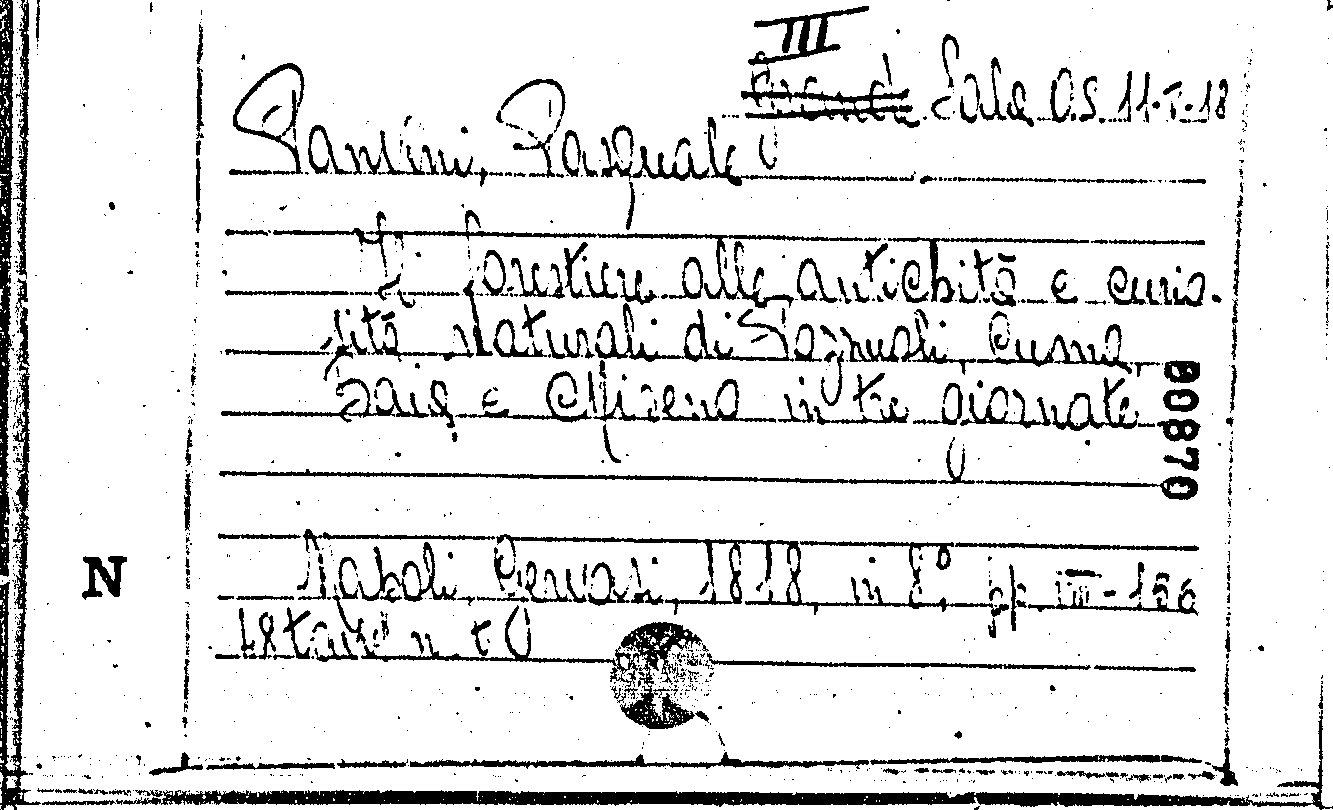 III
Grande Sala O.S. 11-I-18
Panvini, Pasquale
Il forestiere alle antichità e curio-
sità naturali di Pozzuoli, Cuma,
Baia e Miseno in tre giornate
00870
Napoli, Gervasi, 1818, in 8°, pp. III-156
N
tav. n. t.